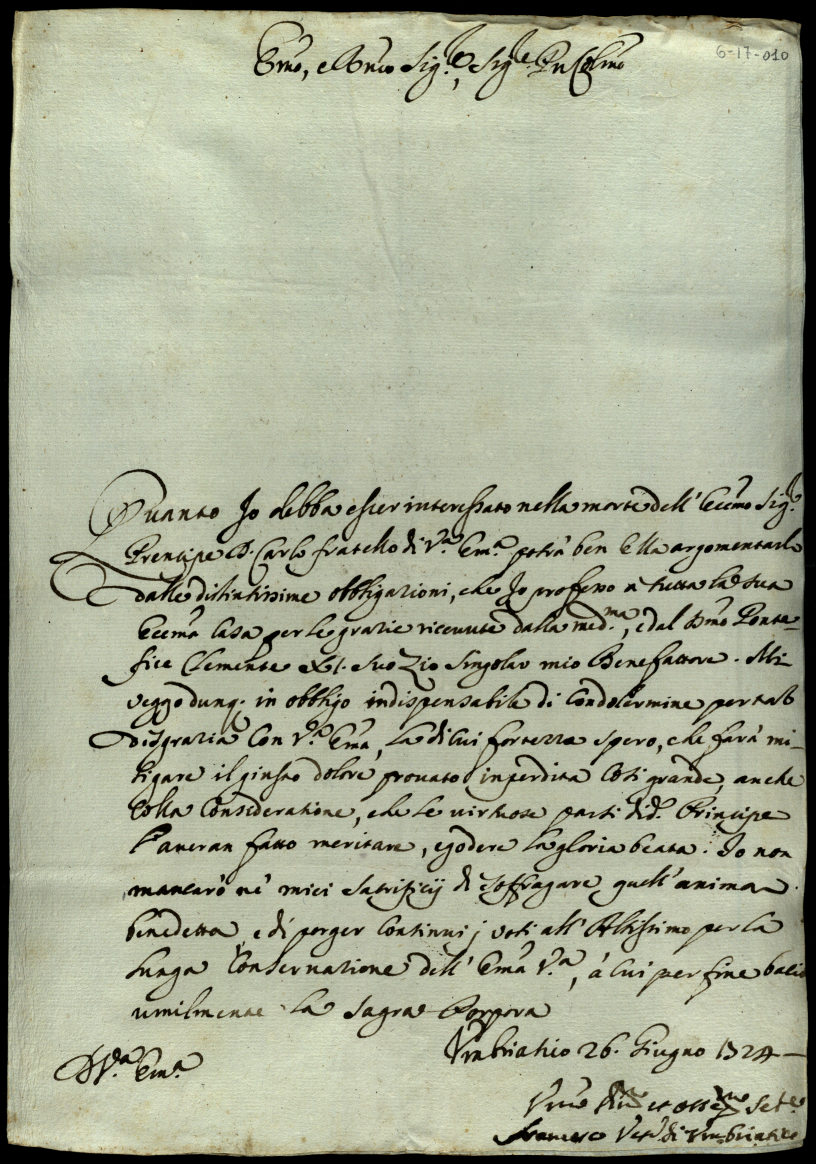 6-17-010
Emo, e Rmo Sig.re, Sig.re Pne Colmo
Quanto Io debba esser interessato nella morte dell' Eccmo Sig.re
Prencipe D. Carlo fratello di V.ra Em.a potrà ben Ella argomentarlo
dalle distintissime obbligazioni, che Io professo a tutta la sua
Eccma Casa per le grazie ricevute dalla med.ma, e dal Smo Ponte-
fice Clemente XI. suo Zio singolar mio Benefattore. Mi
veggo dunq. in obbligo indispensabile di condolermine per tal
disgrazia con V.ra Ema, la di lui fortezza spero, che farà mi-
tigare il giusto dolore provato in perdita così grande, anche
colla consideratione, che le virtuose parti di d.o Principe
l'averan fatto meritare, e godere la gloria beata. Io non
mancarò ne' miei Sacrificij di soffragare quell' anima
benedetta, e di porger continui voti all' Altissimo per la
lunga conservatione dell' Ema V.ra, à cui per fine bacio
umilmente la sagra Porpora
Umbriatico 26. Giugno 1724
D V.ra Em.a
Francesco Vesc.o di Umbriatico